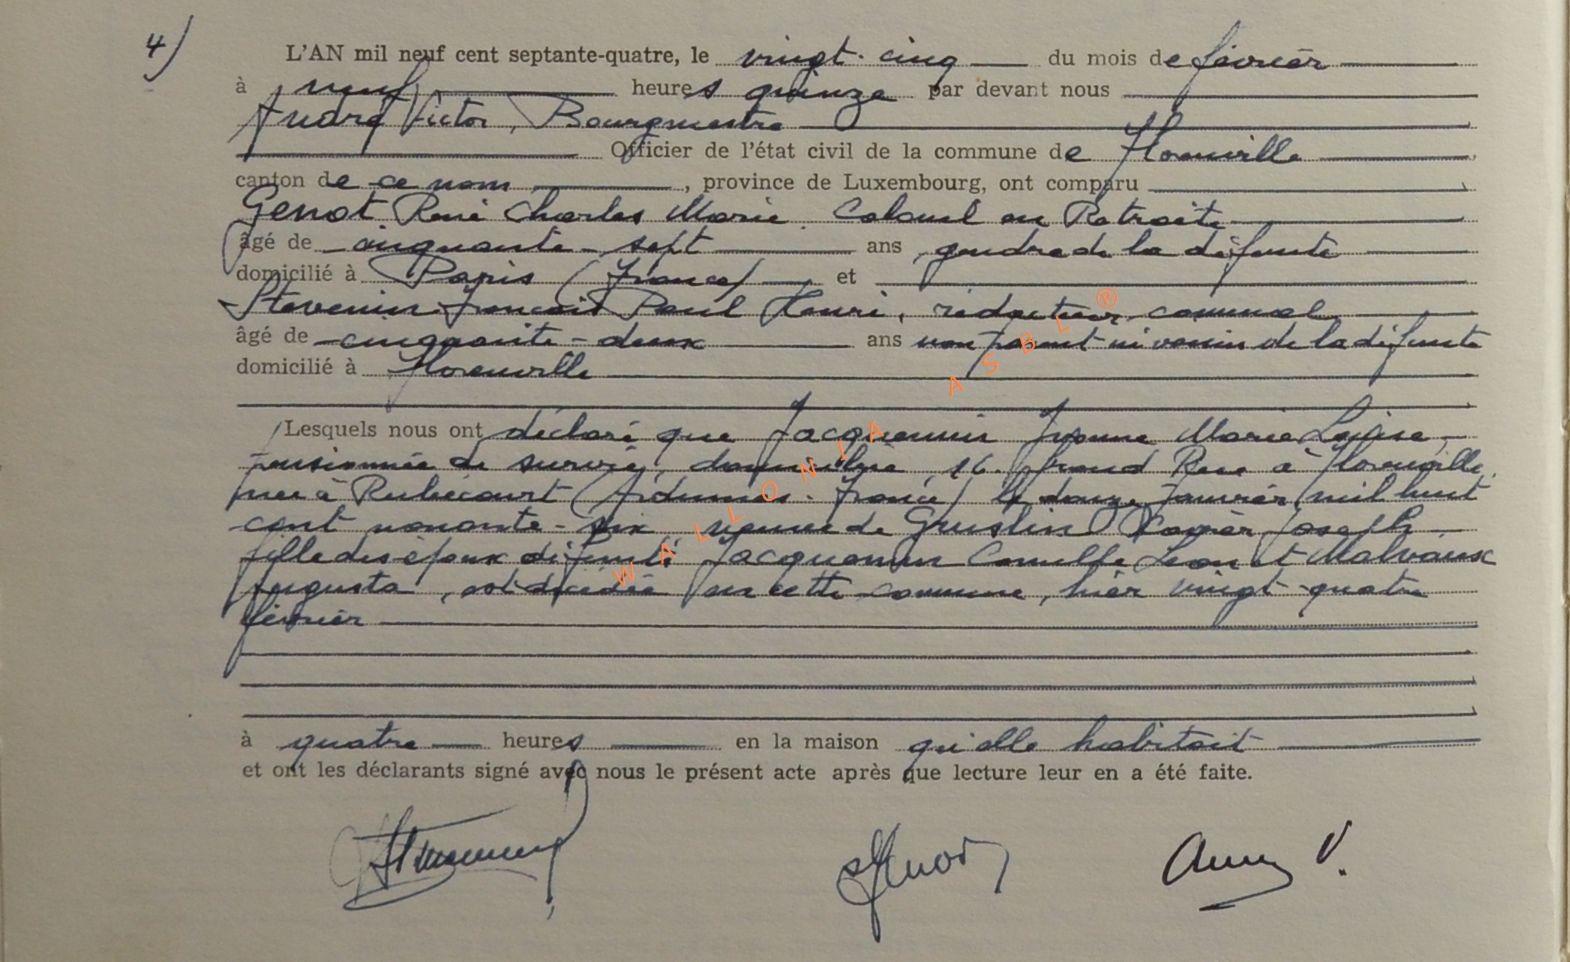 4)
L'AN mil neuf cent septante-quatre, le vingt-cinq du mois de février
à neuf heures quinze par devant nous
André Victor, Bourgmestre
Officier de l'état civil de la commune de Florenville
canton de ce nom, province de Luxembourg, ont comparu
Genot René Charles Marie Colonel en Retraite
âgé de cinquante-sept ans gendre de la défunte
domicilié à Paris (France) et
Stevenin François Paul Henri, rédacteur communal
âgé de cinquante-deux ans non parent ni voisin de la défunte
domicilié à Florenville
Lesquels nous ont déclaré que Jacquemin Yvonne Marie Louise,
pensionnée de survie, domiciliée 16 Grand Rue à Florenville,
née à Rubécourt (Ardennes - France) le douze janvier mil huit
cent nonante-six veuve de Gruslin Xavier Joseph
fille des époux défunts Jacquemin Camille Léon et Malvaux
Augusta, est décédée en cette commune, hier vingt-quatre
février
à quatre heures en la maison qu'elle habitait
et ont les déclarants signé avec nous le présent acte après que lecture leur en a été faite.
WALLONIA ASBL ®